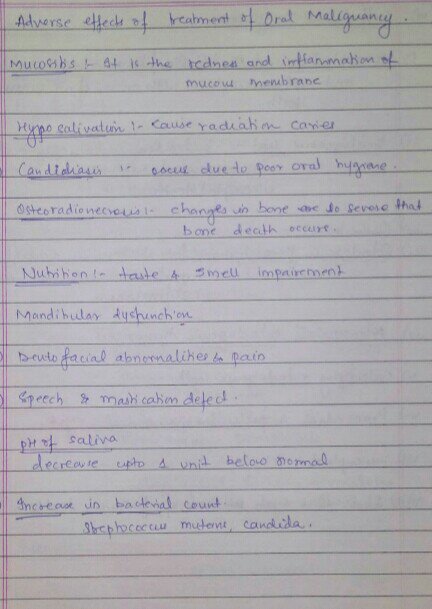 Adverse effects of treatment of Oral Malignancy.
Mucositis :- It is the redness and inflammation of
mucous membrane
Hypo salivation :- Cause radiation caries
Candidiasis :- occur due to poor oral hygiene.
Osteoradionecrosis :- changes in bone are so severe that
bone death occurs.
Nutrition :- taste & smell impairement
Mandibular dysfunction
Dento facial abnormalities & pain
Speech & mastication defect.
pH of saliva
decrease upto 1 unit below normal
Increase in bacterial count.
Streptococcus mutens, candida.